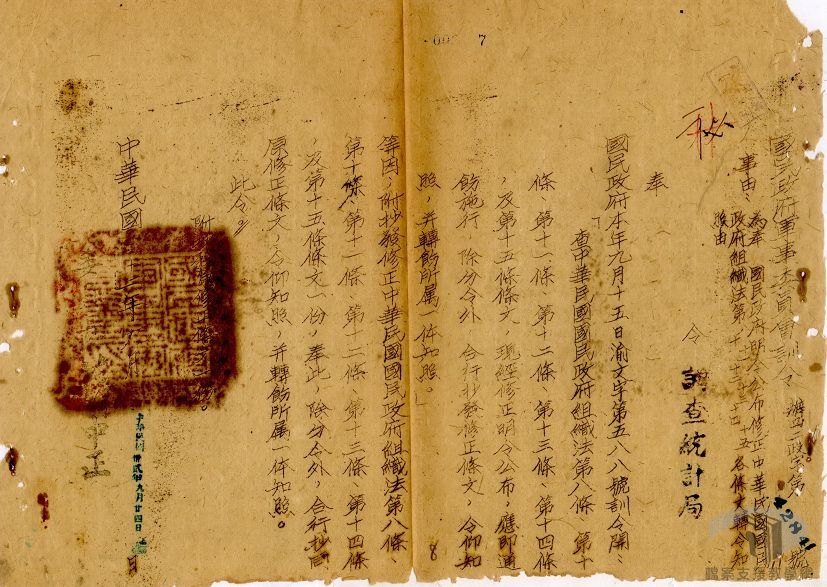 7
秘
國民政府軍事委員會訓令 辦二政字第 號
42841
事由：為奉 國民政府明令公布修正中華民國國民
政府組織法第 十五各條文轉令知
照由
令 調查統計局
奉
國民政府本年九月十五日渝文字第五八八號訓令開：
「查中華民國國民政府組織法第八條、第十
條、第十一條、第十二條、第十三條、第十四條
，及第十五條條文，現經修正明令公布，應即通
飭施行，除分令外，合行抄發修正條文，令仰知
照，并轉飭所屬一体知照。」
等因，附抄發修正中華民國國民政府組織法第八條、
第十條、第十一條、第十二條、第十三條、第十四條
，及第十五條條文一份，奉此，除分令外，合行抄同
原修正條文，令仰知照，并轉飭所屬一体知照。
此令。
附
中華民國 三十二年
中正
中華民國 卅貳年九月廿四日
日
8